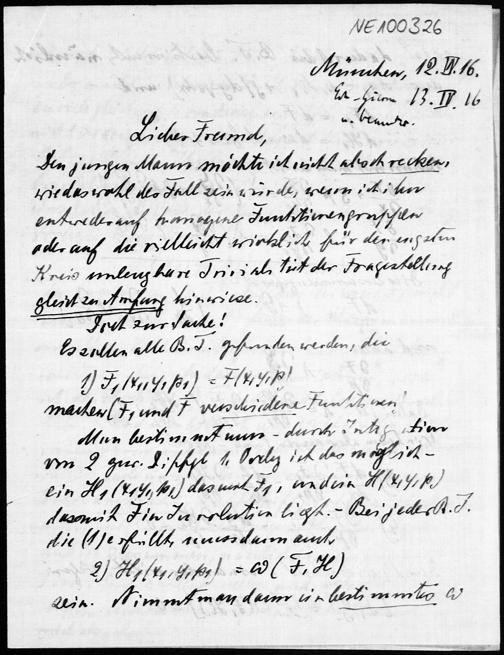 NE100326
München, 12.IV.16.
13.IV.16
Lieber Freund,
Den jungen Mann möchte ich nicht abschrecken,
wie das wohl der Fall sein würde, wenn ich ihn
entweder auf homogene Funktionengruppen
oder auf die vielleicht wirklich für den engsten
Kreis unleugbare Trivialität der Fragestellung
gleich zu Anfang hinwiese.
Doch zur Sache!
Es sollen alle B.T. gefunden werden, die
1) F₁(x₁,y₁,p₁) = F(x,y,p)
machen (F₁ und F verschiedene Funktionen)
Man bestimmt nun - durch Integration
von 2 gew. Diffgl. 1. Ordg
ein H₁(x₁,y₁,p₁) das mit F₁, und ein H(x,y,p)
das mit F in Involution liegt. - Bei jeder B.T.
die (1) erfüllt, muss dann auch
2) H₁(x₁,y₁,p₁) = ω(F,H)
sein. Nimmt man dann ein bestimmtes ω